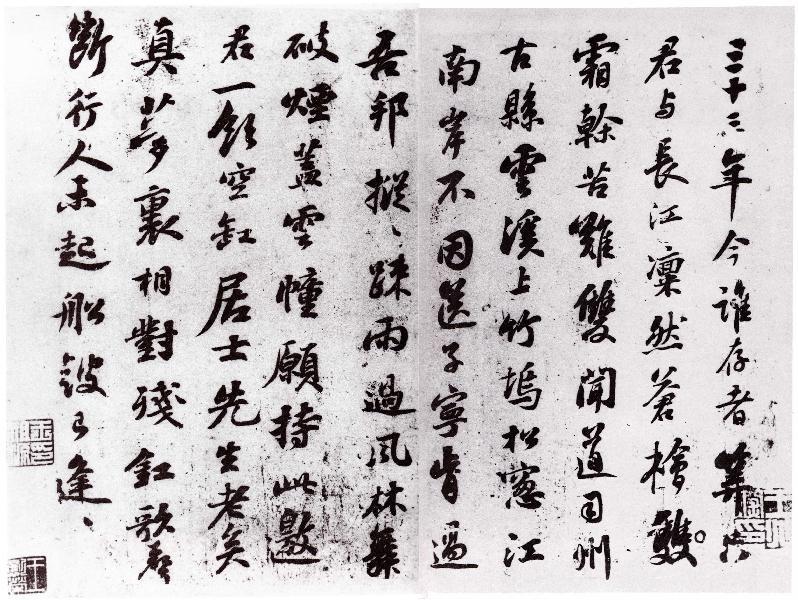 三十三年今誰存者算只
君与長江凜然蒼檜雙
霜幹苦難雙聞道司州
古縣雲溪上竹塢松窻江
南岸不因送子寧肯過
吾邦摐〻踈雨過風林舞
破煙蓋雲幢願持此邀
君一飲空缸居士先生老矣
真夢裏相對殘釭歌聲
斷行人未起船鼓已逢〻